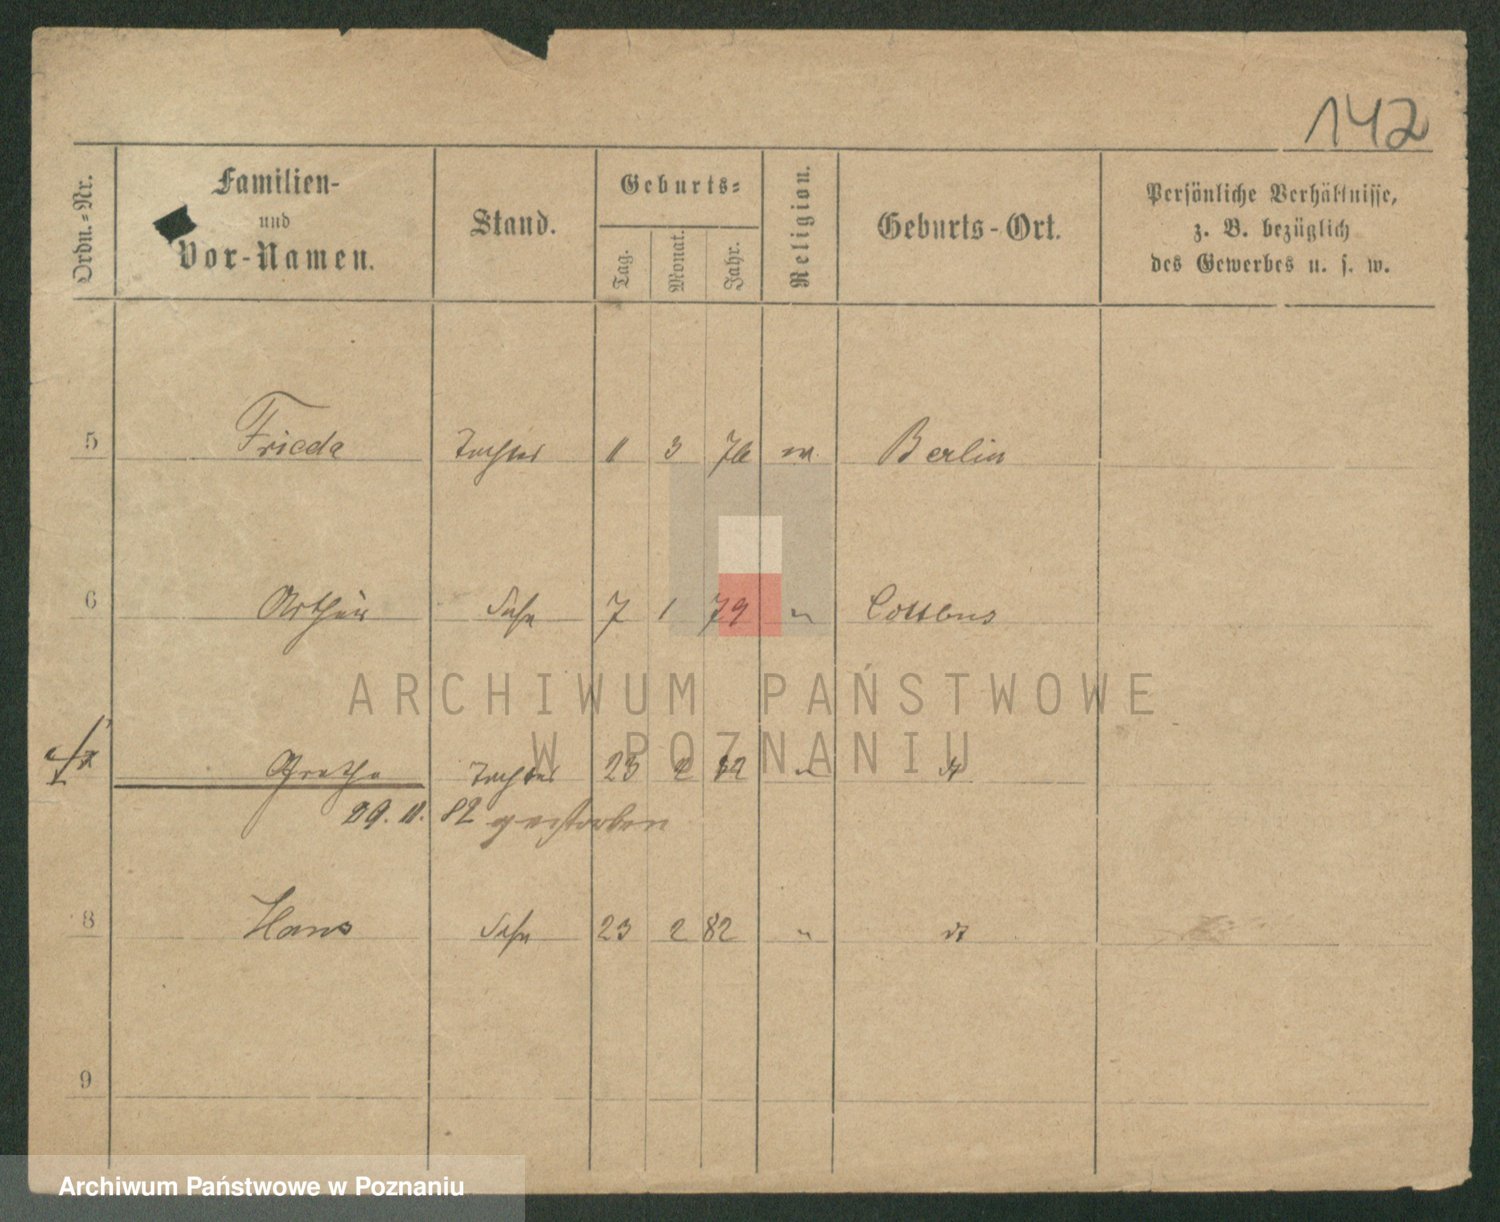 142
Ordn.-Nr.
Familien-
und
Vor-Namen.
Stand.
Geburts-
Tag.
Monat.
Jahr.
Religion.
Geburts-Ort.
Persönliche Verhältnisse,
z. B. bezüglich
des Gewerbes u. s. w.
5 Frieda Tochter 11 3 76 Berlin
6 Arthur Sohn 7 1 79 " Cottbus
ARCHIWUM PAŃSTWOWE
W POZNANIU
7 Grethe Tochter 23 2 82 " dt
29. 11. 82 gestorben
8 Hans Sohn 23 2 82 " dt
9
Archiwum Państwowe w Poznaniu